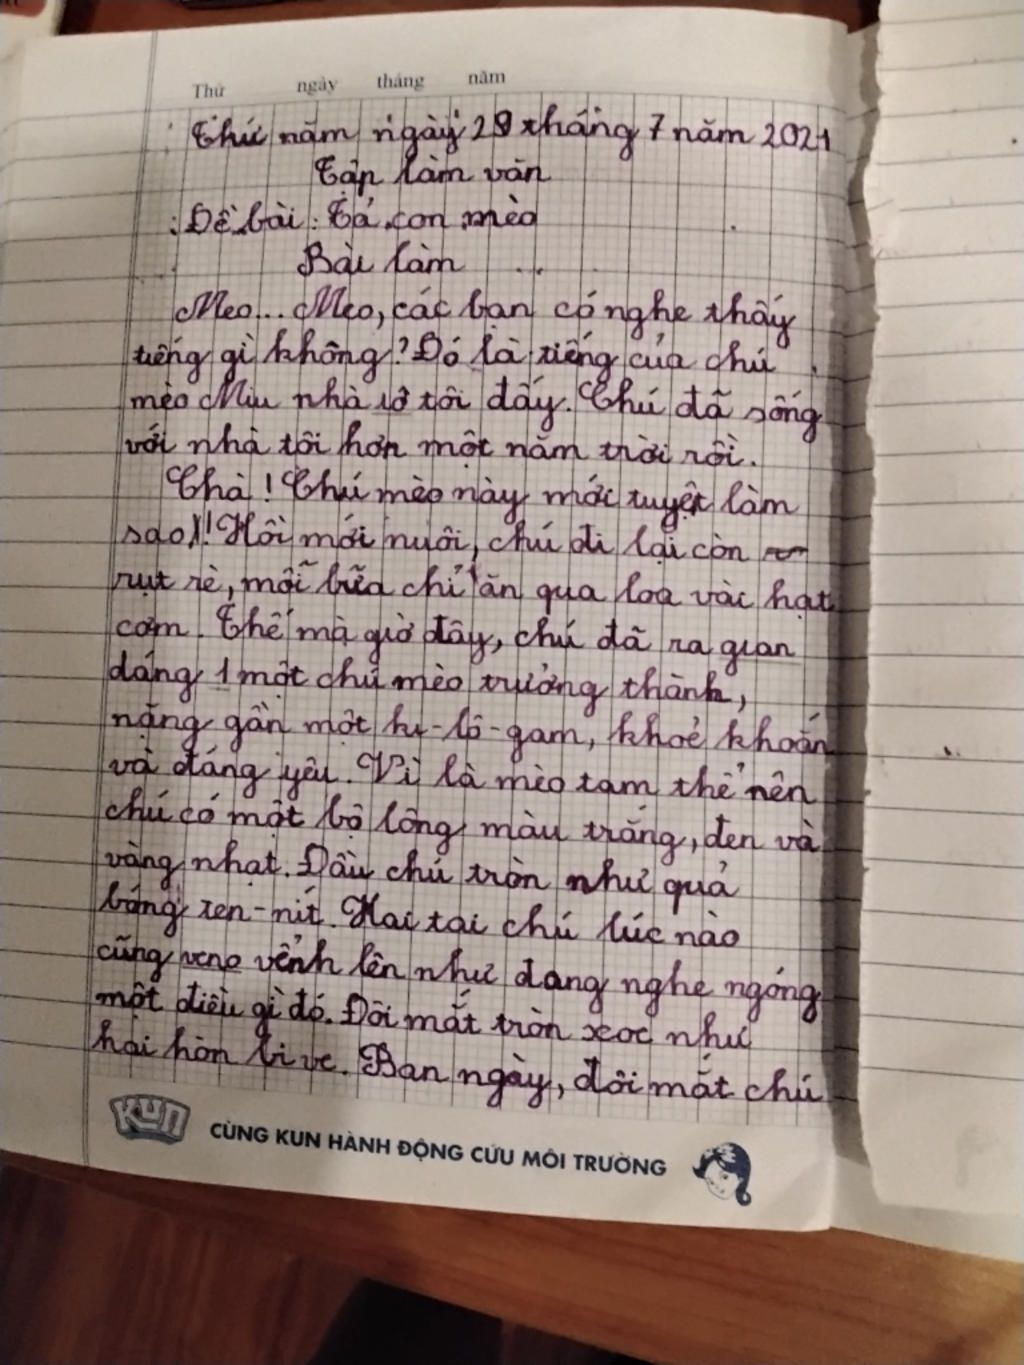 Thứ ngày tháng năm
Thứ năm ngày 29 tháng 7 năm 2021
Tập làm văn
Đề bài: Tả con mèo
Bài làm
Meo... Meo, các bạn có nghe thấy
tiếng gì không? Đó là tiếng của chú
mèo Miu nhà tôi đấy. Chú đã sống
với nhà tôi hơn một năm trời rồi.
Chà! Chú mèo này mới tuyệt làm
sao! Hồi mới nuôi, chú đi lại còn
rụt rè, mỗi bữa chỉ ăn qua loa vài hạt
cơm. Thế mà giờ đây, chú đã ra gian
dáng 1 một chú mèo trưởng thành,
nặng gần một ki-lô-gam, khoẻ khoắn
và đáng yêu. Vì là mèo tam thể nên
chú có một bộ lông màu trắng, đen và
vàng nhạt. Đầu chú tròn như quả
bóng ten-nít. Hai tai chú lúc nào
cũng vểnh lên như đang nghe ngóng
một điều gì đó. Đôi mắt tròn xoe như
hai hòn bi ve. Ban ngày, đôi mắt chú
KUN CÙNG KUN HÀNH ĐỘNG CỨU MÔI TRƯỜNG